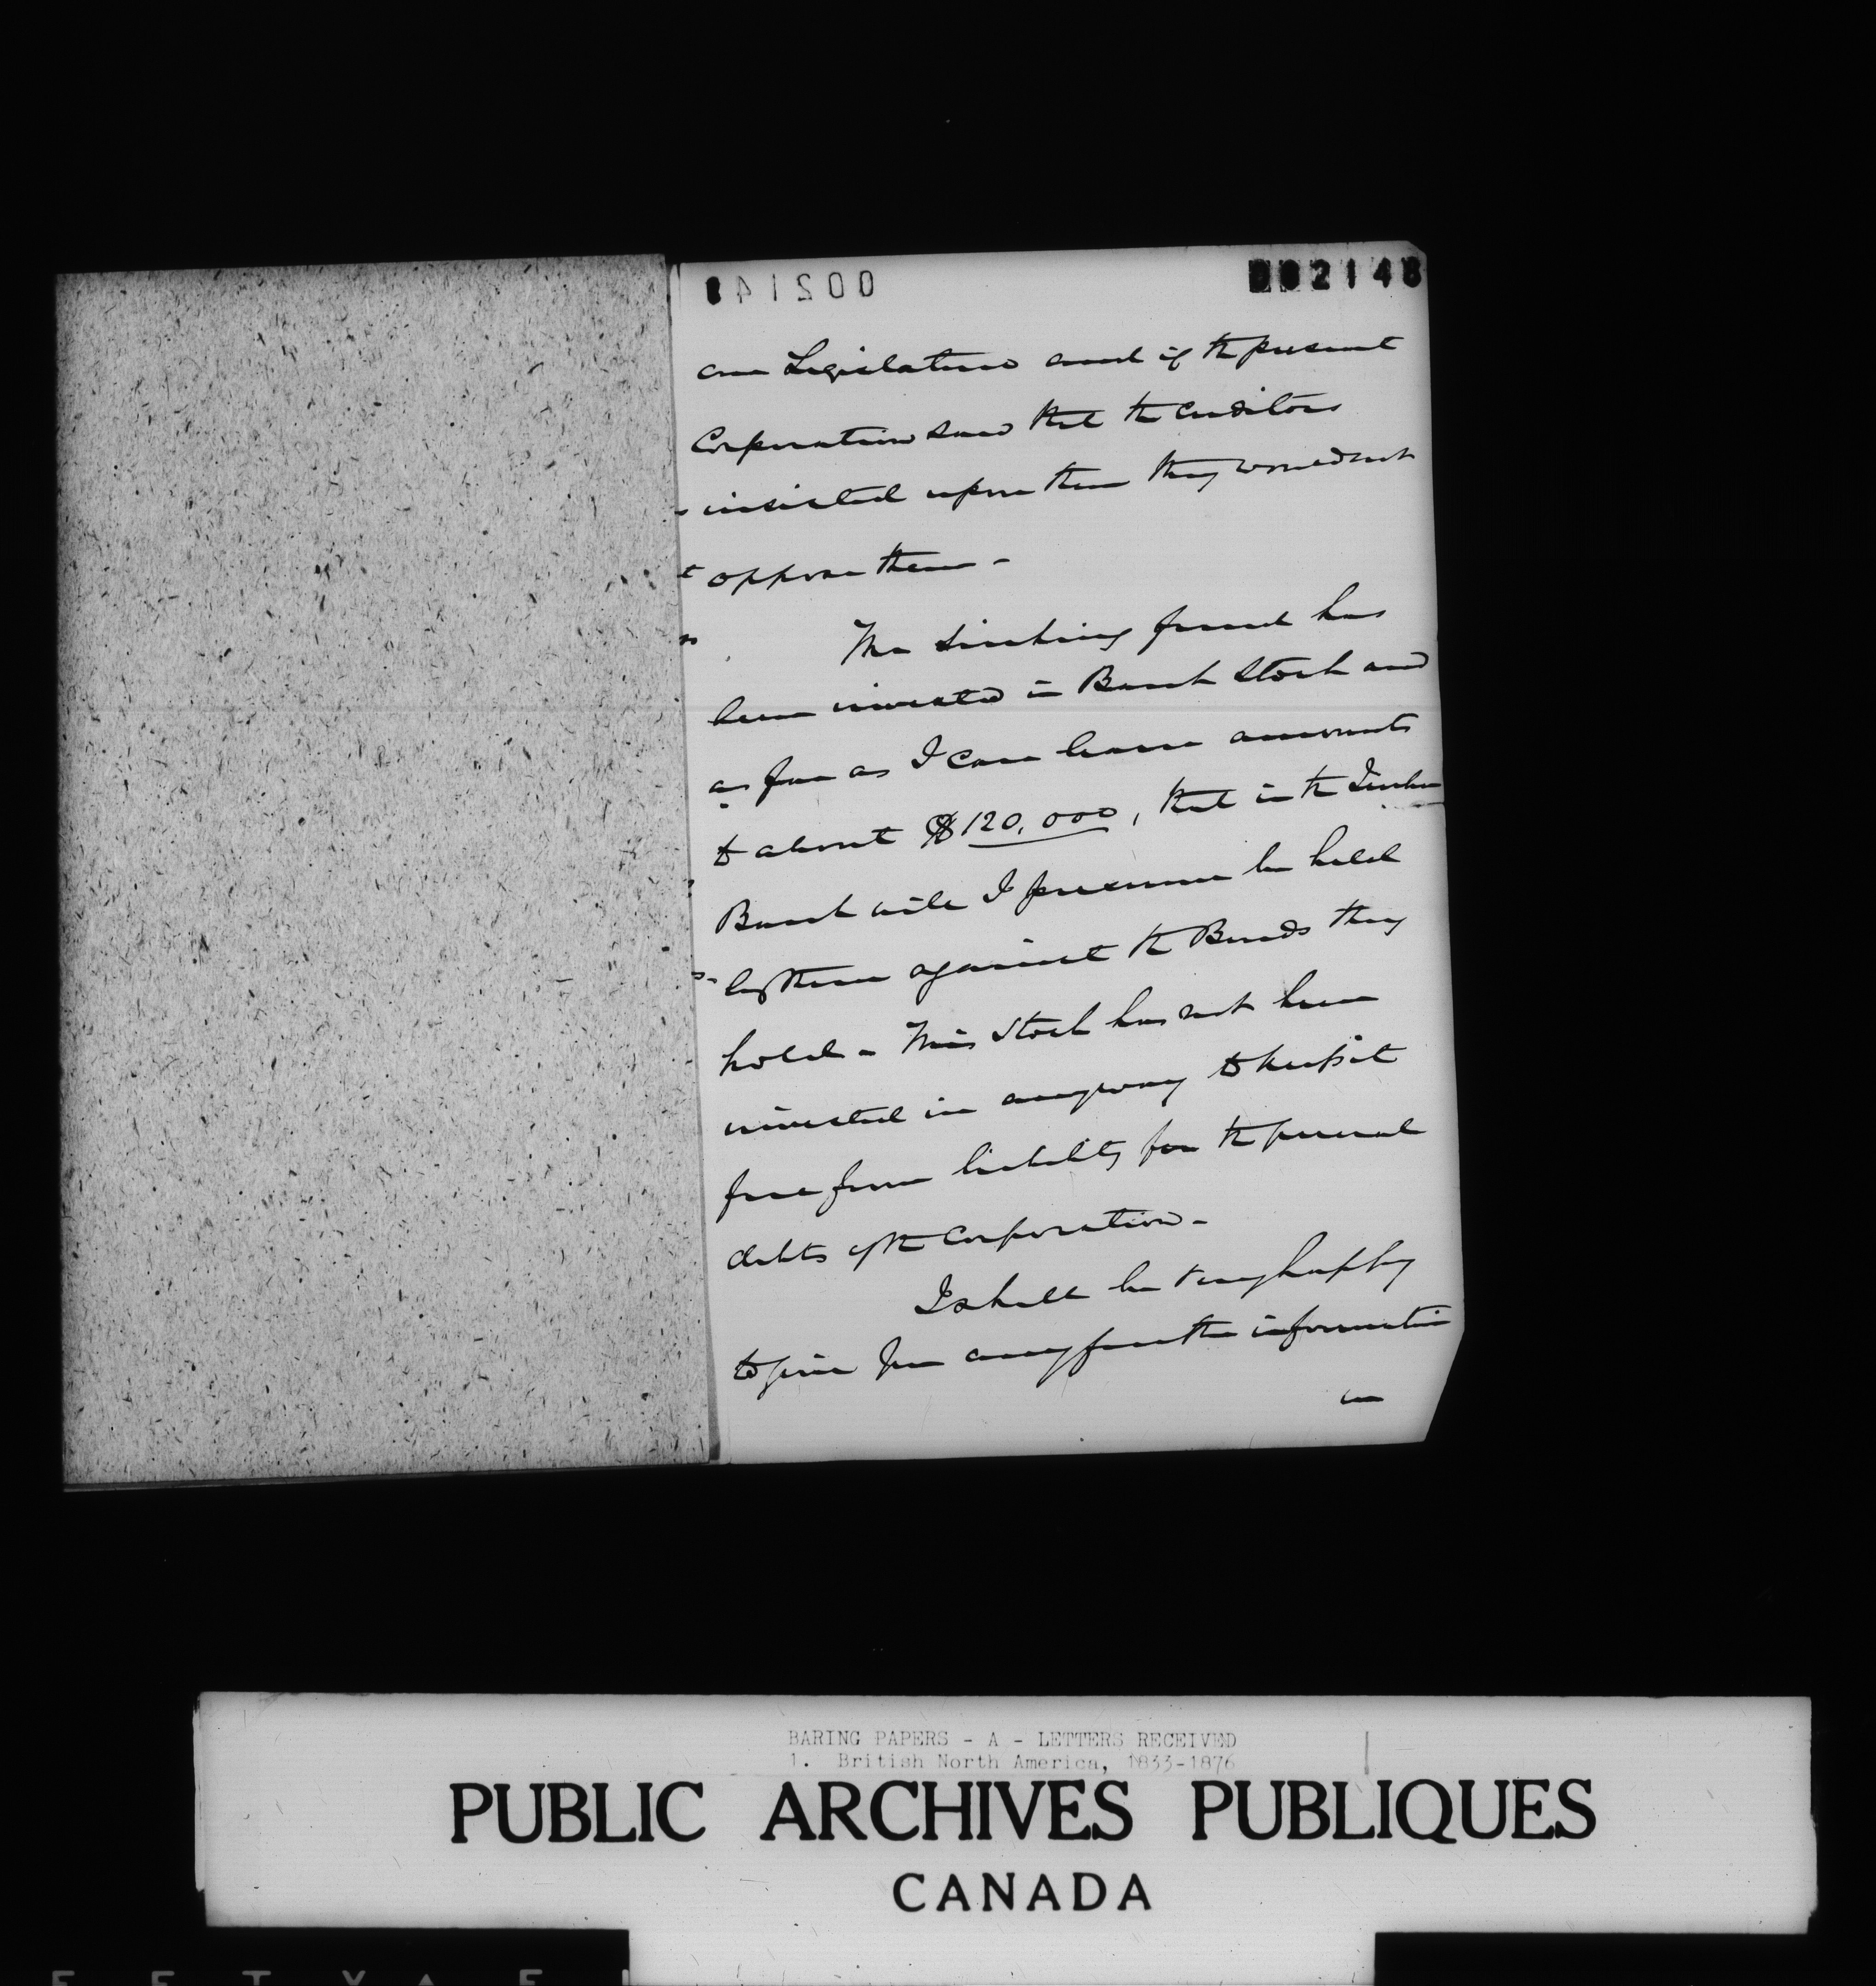 002148
our Legislature and if the present
Corporation saw that the Creditors
insisted upon them they would not
oppose them -
The Sinking fund has
been invested in Bank Stock and
as far as I can learn amounts
to about $120,000, that in the
Bank will I presume be held
by them against the Bonds they
hold - This Stock has not been
invested in anyway to keep it
free from liability for the general
debts of the Corporation -
I shall be very happy
to give you any further information
BARING PAPERS - A - LETTERS RECEIVED
1. British North America, 1833-1876
PUBLIC ARCHIVES PUBLIQUES
CANADA